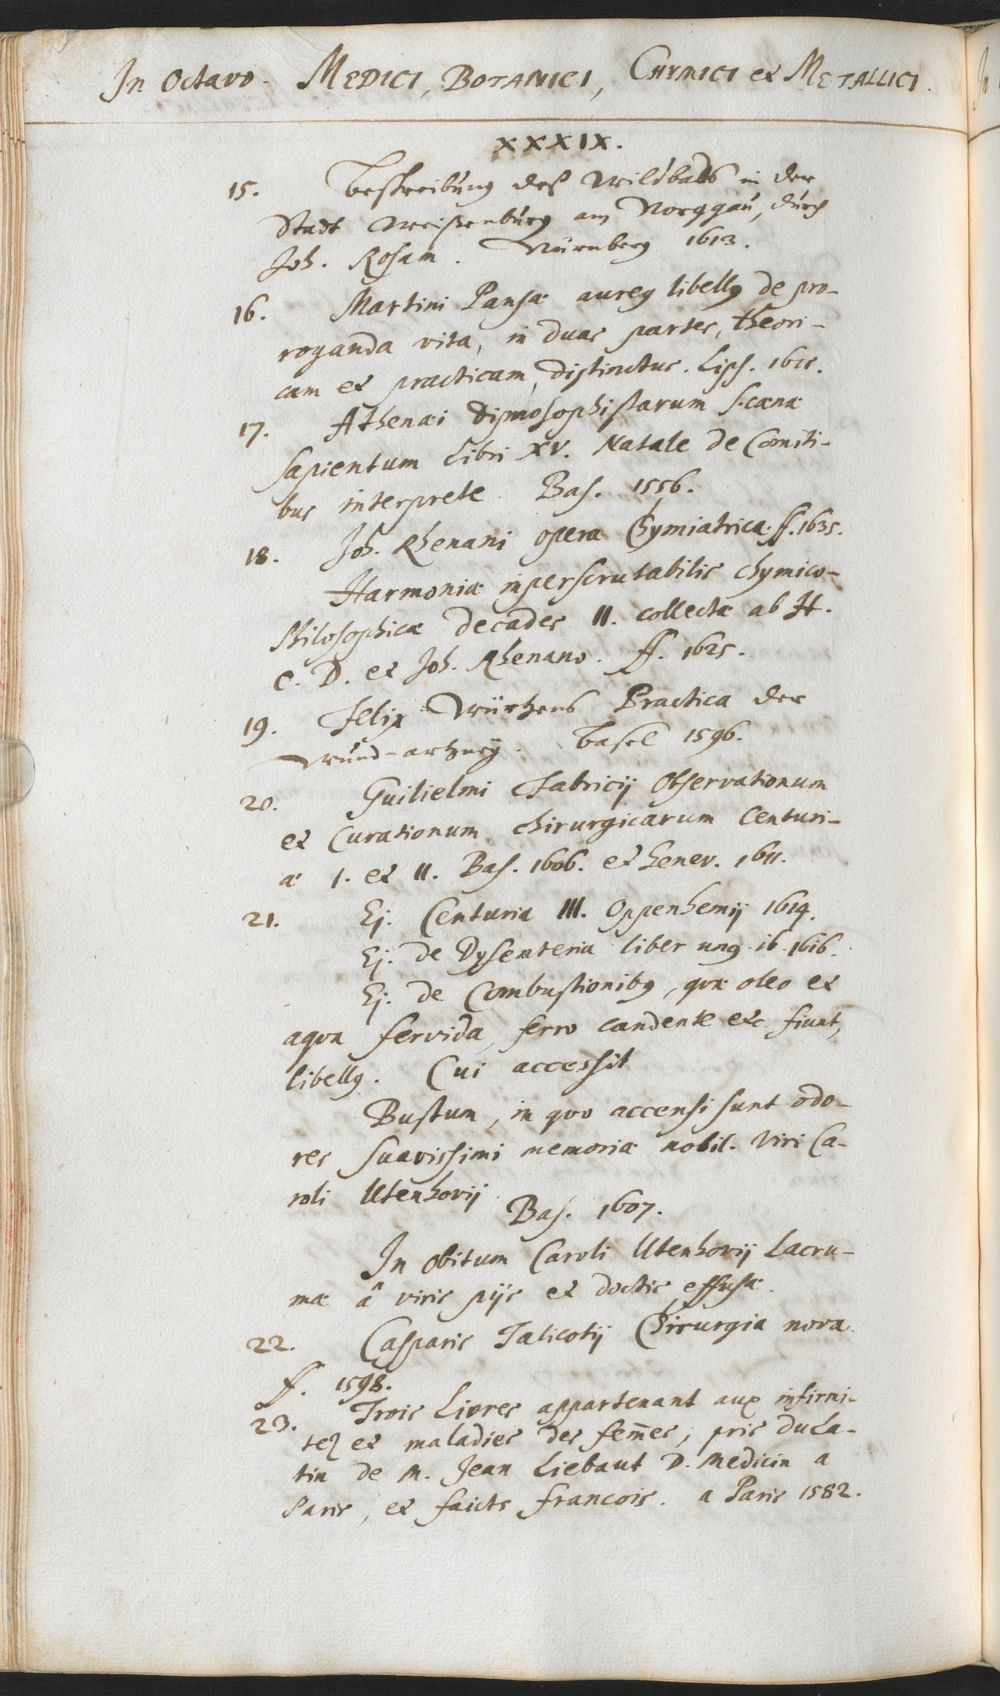 In Octavo. MEDICI, BOTANICI, CHYMICI et METALLICI.
XXXIX.
15. Beschreibung deß Wildbads in der
Stadt Weissenburg am Norggau, durch
Joh. Rosam. Nürnberg 1613.
16. Martini Pansæ aureꝰ libellꝰ de pro-
roganda vita, in duas partes, theori-
cam et practicam, distinctus. Lips. 1615.
17. Athenæi Dipnosophistarum s. cænæ
sapientum Libri XV. Natale de Comiti-
bus interprete. Bas. 1556.
18. Joh. Rhenani opera Chymiatrica. ff. 1635.
Harmoniæ inperscrutabilis chymico-
Philosophicæ decades II. collectæ ab H.
C. D. et Joh. Rhenano. ff. 1625.
19. Felix Würtzens Practica der
Wund-artzney. Basel 1596.
20. Guilielmi Fabricij Observationum
et Curationum chirurgicarum Centuri-
æ I. et II. Bas. 1606. et Genev. 1611.
21. Ej. Centuria III. Oppenhemij 1614.
Ej. de Dysenteria liber unꝰ ib. 1616.
Ej. de Combustionibꝰ, quæ oleo et
aqua fervida, ferro candente etc. fiunt,
libellꝰ. Cui accessit
Bustum, in quo accensi sunt odo-
res suavissimi memoriæ nobil. viri Ca-
roli Utenhovij
Bas. 1607.
In obitum Caroli Utenhovij Lacru-
mæ â viris pijs et doctis effusæ.
22. Casparis Talicotij Chirurgia nova
f. 1598.
23. Trois Livres appartenant aux infirmi-
tez et maladies des fem̄es, pris du La-
tin de M. Jean Liebaut D. Medicin a
Paris, et faicts francois. a Paris 1582.